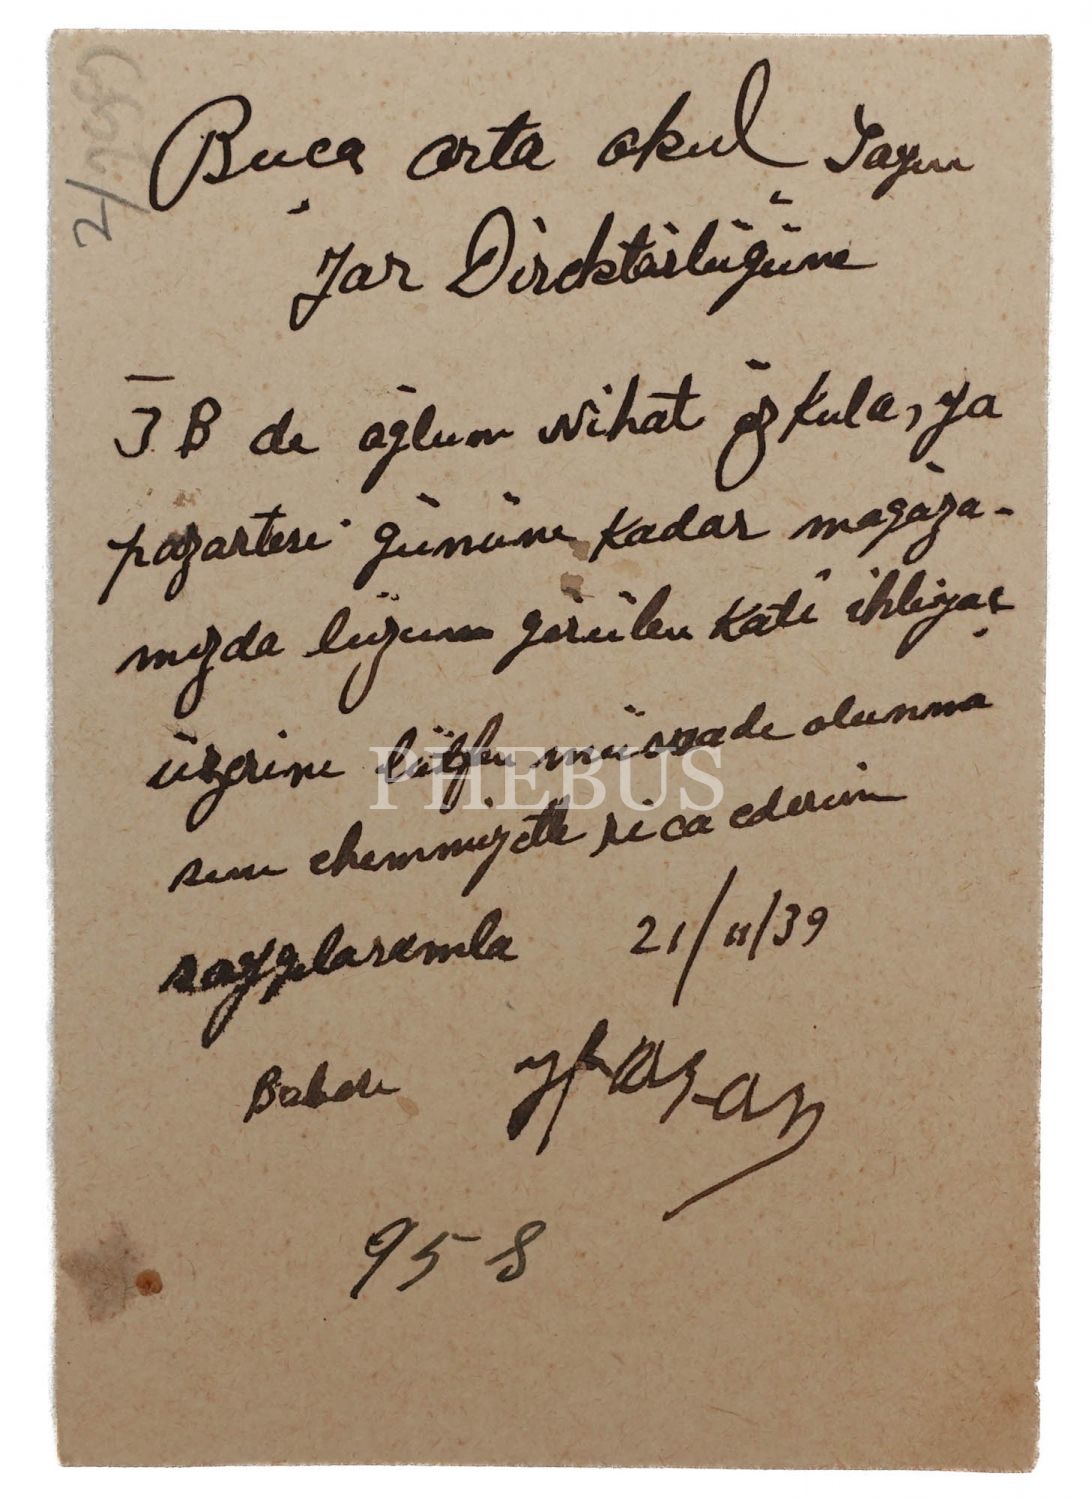 Buca orta okul Sayın
Yar Direktörlüğüne
I B de oğlum Nihat özkula, ya
pazartesi gününe kadar mağaza-
mızda lüzum görülen kati ihtiyaç
üzerine lütfen müsaade olunma
sını ehemmiyetle rica ederim
saygılarımla 21/11/39
Babası
958
PHEBUS